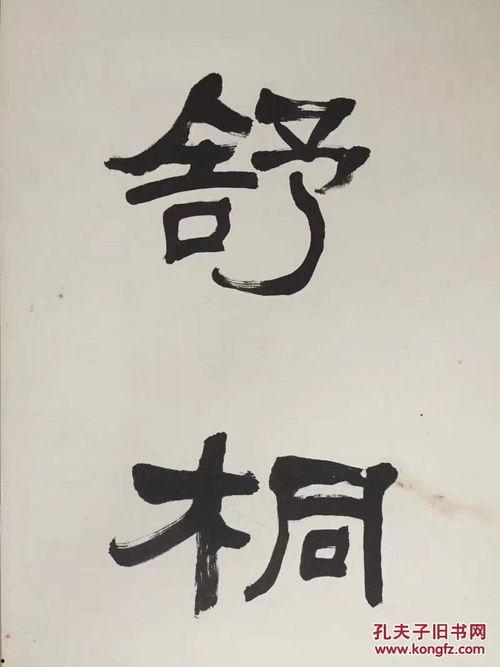 舒
桐
孔夫子旧书网
kongfz.com